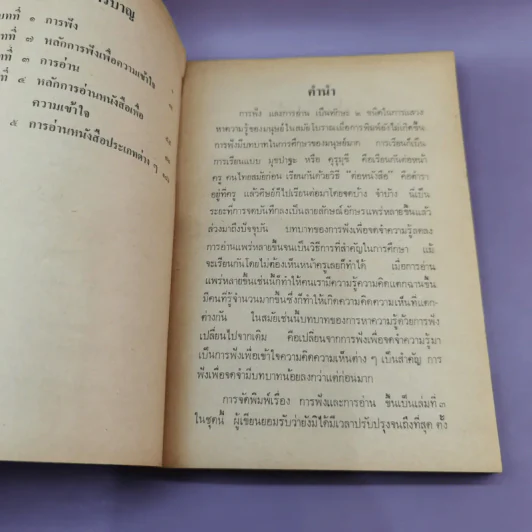 รบาญ
บทที่ ๑ การฟัง
ที่ ๒ หลักการฟังเพื่อความเข้าใจ
ที่ ๓ การอ่าน
ที่ ๔ หลักการอ่านหนังสือเพื่อ
ความเข้าใจ
๕ การอ่านหนังสือประเภทต่าง ๆ
คำนำ
การฟัง และการอ่าน เป็นทักษะ ๒ ชนิดในการแสวง
หาความรู้ของมนุษย์ ในสมัยโบราณเมื่อการพิมพ์ยังไม่เกิดขึ้น
การฟังมีบทบาทในการศึกษาของมนุษย์มาก การเรียนก็เป็น
การเรียนแบบ มุขปาฐะ หรือ ครุมุขี คือเรียนกันต่อหน้า
ครู คนไทยสมัยก่อน เรียนกันด้วยวิธี "ต่อหนังสือ" คือตำรา
อยู่ที่ครู แล้วศิษย์ก็ไปเรียนต่อมาโดยจดบ้าง จำบ้าง นี่เป็น
ระยะที่การจดบันทึกลงเป็นลายลักษณ์อักษรแพร่หลายขึ้นแล้ว
ล่วงมาถึงปัจจุบัน บทบาทของการฟังเพื่อจดจำความรู้ลดลง
การอ่านแพร่หลายขึ้นจนเป็นวิธีการที่สำคัญในการศึกษา แม้
จะเรียนกันโดยไม่ต้องเห็นหน้าครูเลยก็ทำได้ เมื่อการอ่าน
แพร่หลายขึ้นเช่นนี้ก็ทำให้คนเรามีความรู้ความคิดแตกฉานขึ้น
มีคนที่รู้จำนวนมากขึ้นซึ่งก็ทำให้เกิดความคิดความเห็นที่แตก-
ต่างกัน ในสมัยเช่นนี้บทบาทของการหาความรู้ด้วยการฟัง
เปลี่ยนไปจากเดิม คือเปลี่ยนจากการฟังเพื่อจดจำความรู้มา
เป็นการฟังเพื่อเข้าใจความคิดความเห็นต่าง ๆ เป็นสำคัญ การ
ฟังเพื่อจดจำมีบทบาทน้อยลงกว่าแต่ก่อนมาก
การจัดพิมพ์เรื่อง การฟังและการอ่าน ขึ้นเป็นเล่มที่ ๓
ในชุดนี้ ผู้เขียนยอมรับว่ายังมิได้มีเวลาปรับปรุงจนถึงที่สุด ดั่ง